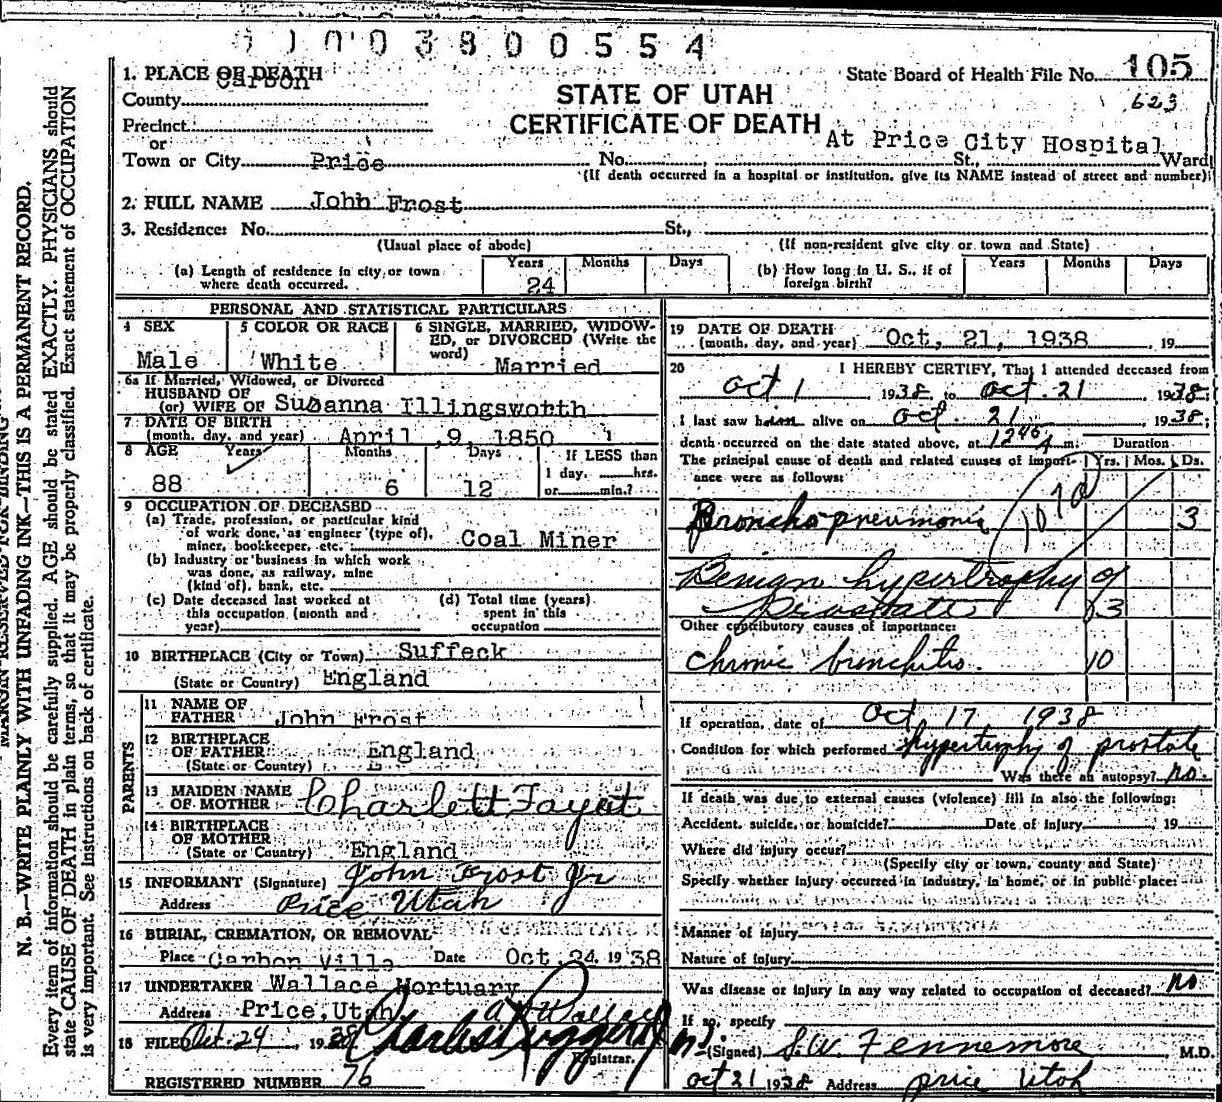 003800554
1. PLACE OF DEATH
State Board of Health File No. 105
County Carbon
STATE OF UTAH
623
Precinct
CERTIFICATE OF DEATH
or
At Price City Hospital
Town or City Price No. St., Ward
(If death occurred in a hospital or institution, give its NAME instead of street and number)
2. FULL NAME John Frost
3. Residence: No. St.,
(Usual place of abode) (If non-resident give city or town and State)
(a) Length of residence in city or town where death occurred. Years 24 Months Days
(b) How long in U. S., if of foreign birth? Years Months Days
PERSONAL AND STATISTICAL PARTICULARS
4 SEX Male
5 COLOR OR RACE White
6 SINGLE, MARRIED, WIDOWED, or DIVORCED (Write the word) Married
6a If Married, Widowed, or Divorced
HUSBAND OF
(or) WIFE OF Susanna Illingsworth
7 DATE OF BIRTH
(month, day, and year) April 9, 1850
8 AGE Years 88 Months 6 Days 12
If LESS than
1 day, hrs.
or min.?
9 OCCUPATION OF DECEASED
(a) Trade, profession, or particular kind
of work done, as engineer (type of),
miner, bookkeeper, etc. Coal Miner
(b) Industry or business in which work
was done, as railway, mine
(kind of), bank, etc.
(c) Date deceased last worked at
this occupation (month and
year)
(d) Total time (years)
spent in this
occupation
10 BIRTHPLACE (City or Town) Suffeck
(State or Country) England
PARENTS
11 NAME OF
FATHER John Frost
12 BIRTHPLACE
OF FATHER England
(State or Country)
13 MAIDEN NAME
OF MOTHER Charlett Fayat
14 BIRTHPLACE
OF MOTHER
(State or Country) England
15 INFORMANT (Signature) John Frost Jr
Address Price, Utah
16 BURIAL, CREMATION, OR REMOVAL
Place Carbon Villa Date Oct 24 1938
17 UNDERTAKER Wallace Mortuary
Address Price, Utah
18 FILED Oct. 24 1938 Charles Ruggeri
Registrar.
REGISTERED NUMBER 76
19 DATE OF DEATH
(month, day, and year) Oct, 21, 1938 , 19
20 I HEREBY CERTIFY, That I attended deceased from
Oct 1 1938, to Oct. 21 1938;
I last saw him alive on Oct. 21 1938;
death occurred on the date stated above, at m. Duration
The principal cause of death and related causes of importance were as follows: Yrs. Mos. Ds.
Broncho-pneumonia 3
Benign hypertrophy of
Prostate 3
Other contributory causes of importance:
Chronic bronchitis. 10
If operation, date of Oct 17 1938
Condition for which performed hypertrophy of prostate
Was there an autopsy? no.
If death was due to external causes (violence) fill in also the following:
Accident, suicide, or homicide? Date of injury 19
Where did injury occur?
(Specify city or town, county and State)
Specify whether injury occurred in industry, in home, or in public place:
Manner of injury
Nature of injury
Was disease or injury in any way related to occupation of deceased? no
If so, specify
(Signed) S.W. Fennemore M.D.
Oct 21 1938 Address Price Utah
MARGIN RESERVED FOR BINDING
N. B.—WRITE PLAINLY WITH UNFADING INK—THIS IS A PERMANENT RECORD.
Every item of information should be carefully supplied. AGE should be stated EXACTLY. PHYSICIANS should
state CAUSE OF DEATH in plain terms, so that it may be properly classified. Exact statement of OCCUPATION
is very important. See instructions on back of certificate.